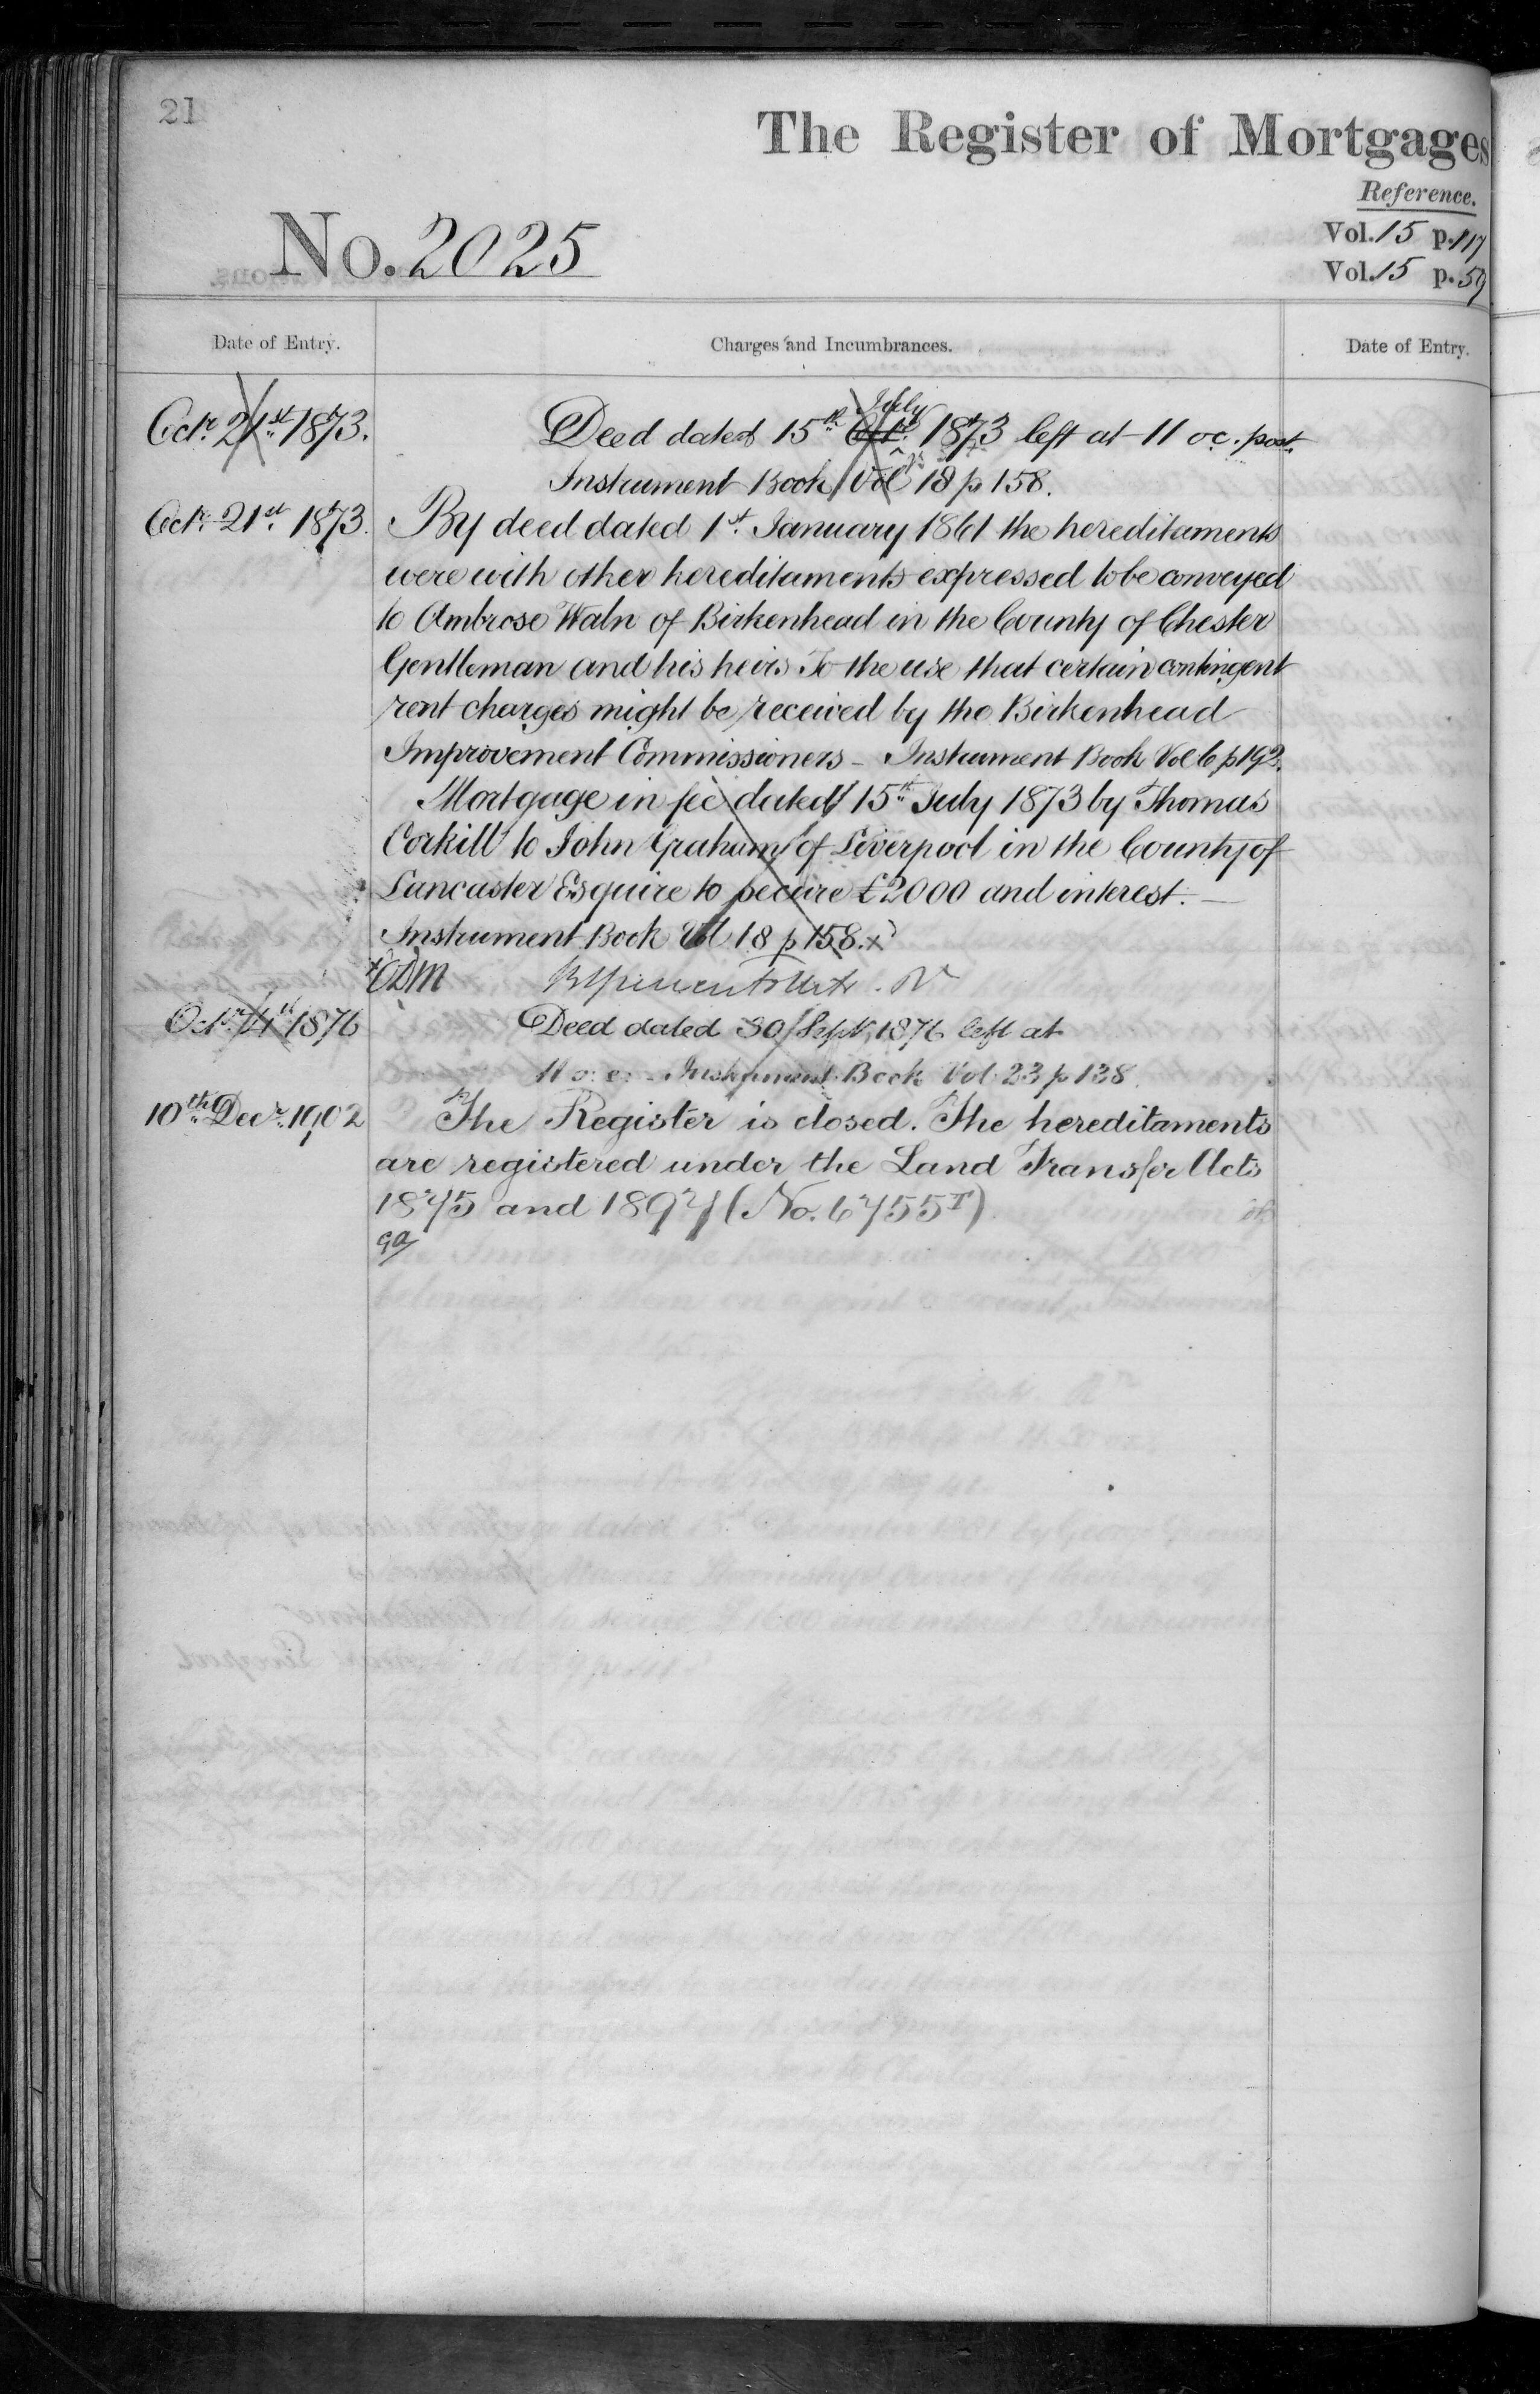 21
The Register of Mortgages
Reference.
Vol. 15 p. 117
Vol. 15 p. 59
No. 2025
Date of Entry.
Charges and Incumbrances.
Date of Entry.
Octr. 21st. 1873.
July
Deed dated 15th. Octr. 1873 left at 11 oc. post.
Instrument Book Vol 18 p 158.
Octr. 21st. 1873.
By deed dated 1st. January 1861 the hereditaments
were with other hereditaments expressed to be conveyed
to Ambrose Waln of Birkenhead in the County of Chester
Gentleman and his heirs To the use that certain contingent
rent charges might be received by the Birkenhead
Improvement Commissioners - Instrument Book Vol 6 p 192.
Mortgage in fee dated 15th. July 1873 by Thomas
Corkill to John Graham of Liverpool in the County of
Lancaster Esquire to secure £2000 and interest. —
Instrument Book Vol 18 p 158. x
Octr. 14th 1876
Deed dated 30 Sept. 1876 left at
11 o.c. - Instrument Book Vol 23 p 138.
10th. Decr. 1902
The Register is closed. The hereditaments
are registered under the Land Transfer Acts
1875 and 1897 (No. 6755T)